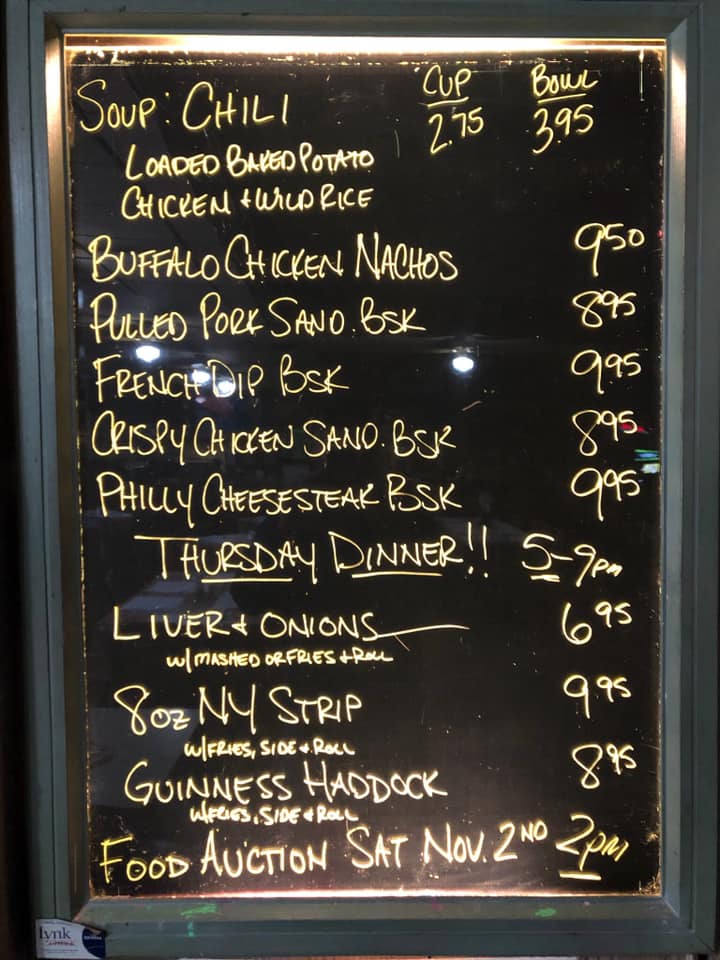 CUP BOWL
SOUP: CHILI 2.75 3.95
LOADED BAKED POTATO
CHICKEN + WILD RICE
BUFFALO CHICKEN NACHOS 9.50
PULLED PORK SAND. BSK 8.95
FRENCH DIP BSK 9.95
CRISPY CHICKEN SAND. BSK 8.95
PHILLY CHEESESTEAK BSK 9.95
THURSDAY DINNER!! 5-9PM
LIVER + ONIONS 6.95
W/MASHED OR FRIES + ROLL
8OZ NY STRIP 9.95
W/FRIES, SIDE + ROLL
GUINNESS HADDOCK 8.95
W/FRIES, SIDE + ROLL
FOOD AUCTION SAT NOV. 2ND 2PM
Lynk